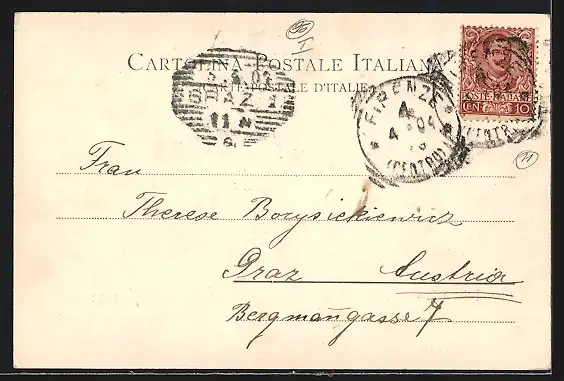 CARTOLINA POSTALE ITALIANA
(CARTE POSTALE D'ITALIE)
GRAZ 1
11 N
FIRENZE
4
4 04
(CENTRO)
POSTE ITALIANE
CEN 10
Frau
Therese Borysiekiewicz
Graz Austria
Bergmanngasse 7